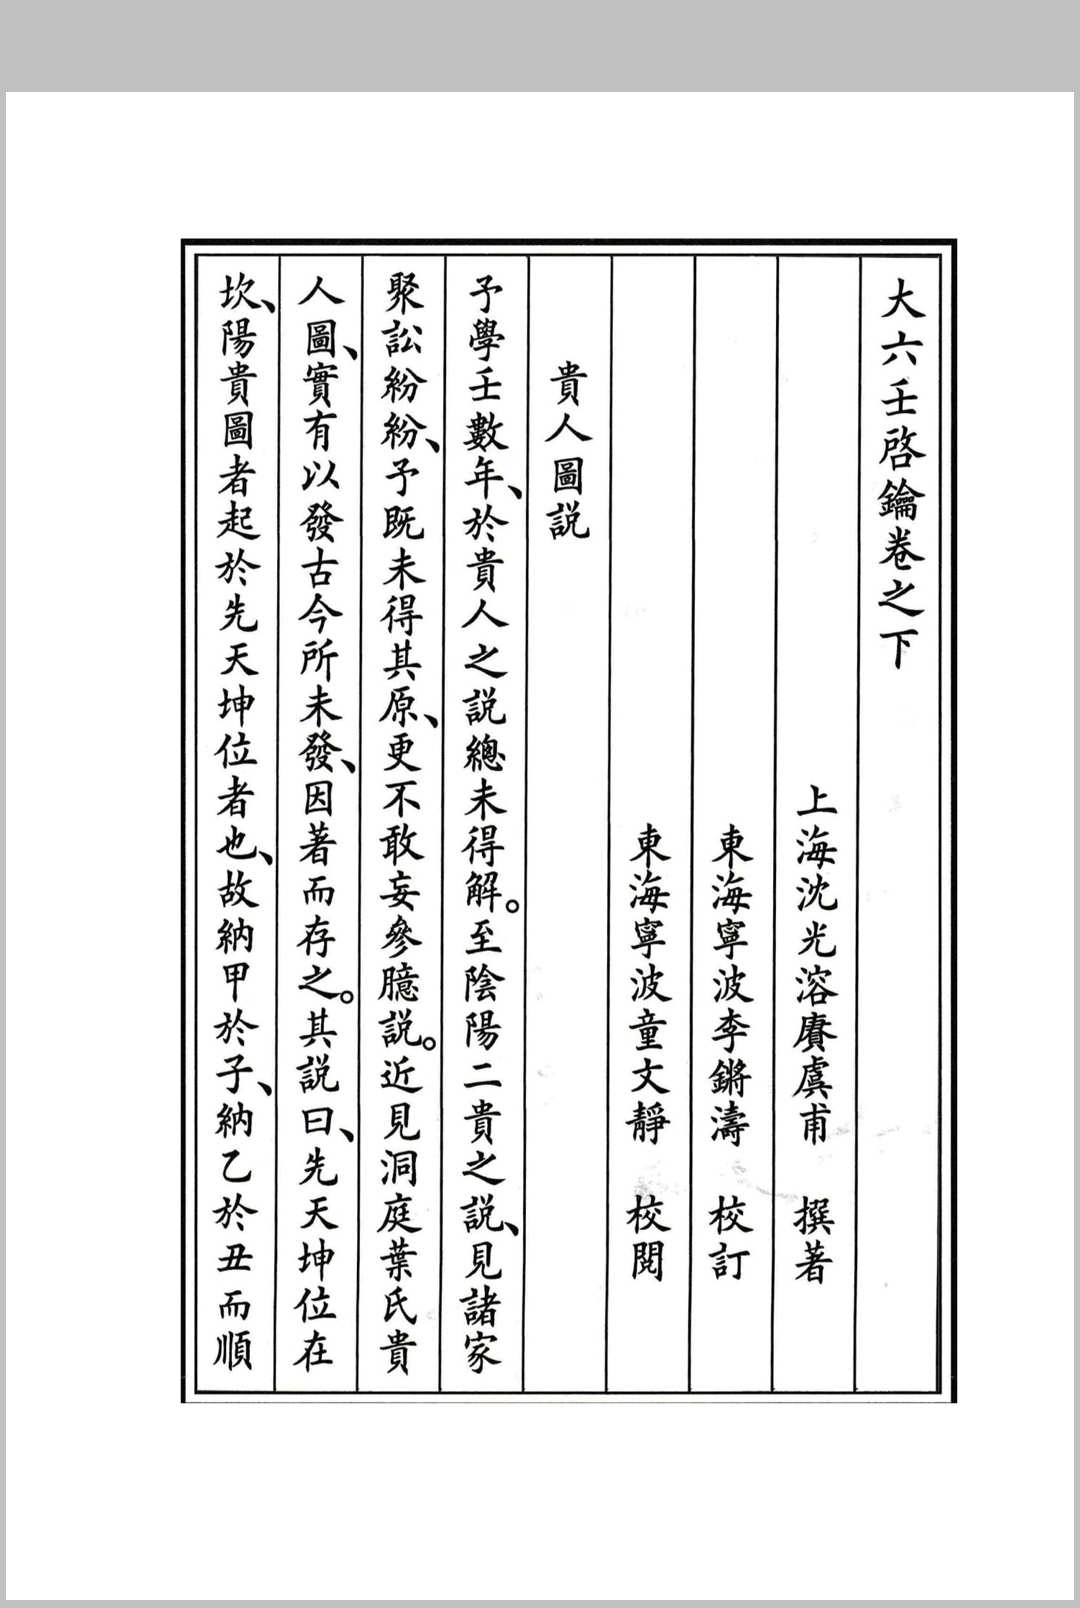 大六壬啓鑰卷之下
上海沈光溶賡虞甫　撰著
東海寧波李鏘濤　校訂
東海寧波童文靜　校閱
貴人圖説
予學壬數年、於貴人之説總未得解。至陰陽二貴之説、見諸家
聚訟紛紛、予既未得其原、更不敢妄參臆説。近見洞庭葉氏貴
人圖、實有以發古今所未發、因著而存之。其説曰、先天坤位在
坎、陽貴圖者起於先天坤位者也、故納甲於子、納乙於丑而順